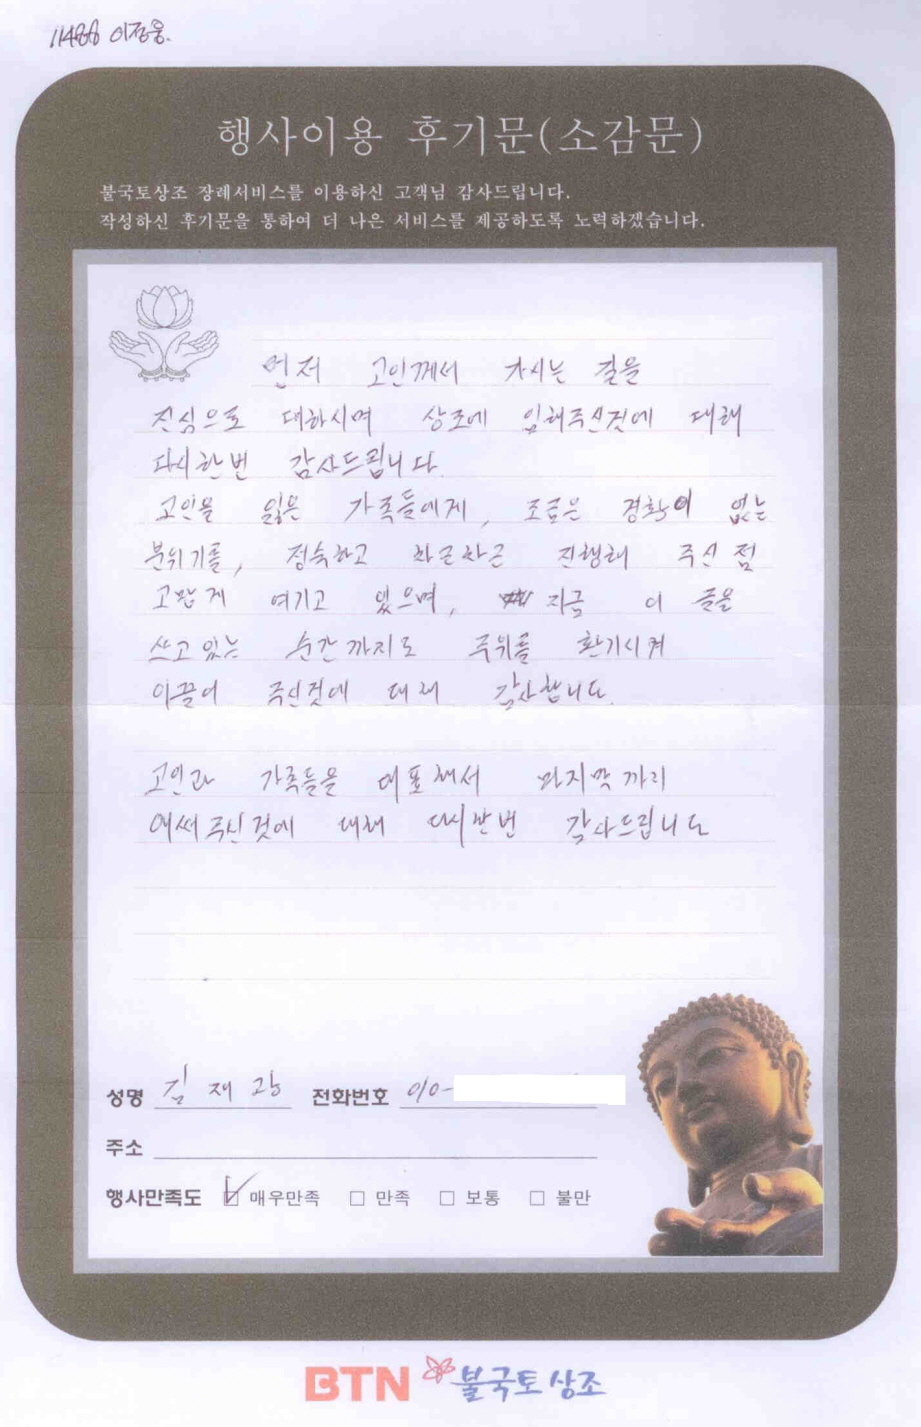 11488 이정웅.
행사이용 후기문(소감문)
불국토상조 장례서비스를 이용하신 고객님 감사드립니다.
작성하신 후기문을 통하여 더 나은 서비스를 제공하도록 노력하겠습니다.
먼저 고인께서 가시는 길을
진심으로 대하시며 상조에 임해주신것에 대해
다시한번 감사드립니다.
고인을 잃은 가족들에게, 조금은 경황이 없는
분위기를, 정숙하고 차근차근 진행해 주신 점
고맙게 여기고 있으며, 지금 이 글을
쓰고있는 순간까지도 주위를 환기시켜
이끌어 주신것에 대해 감사합니다.
고인과 가족들을 대표해서 마지막까지
애써주신것에 대해 다시한번 감사드립니다
성명 김재광 전화번호 010-
주소
행사만족도 매우만족 만족 보통 불만
BTN 불국토상조